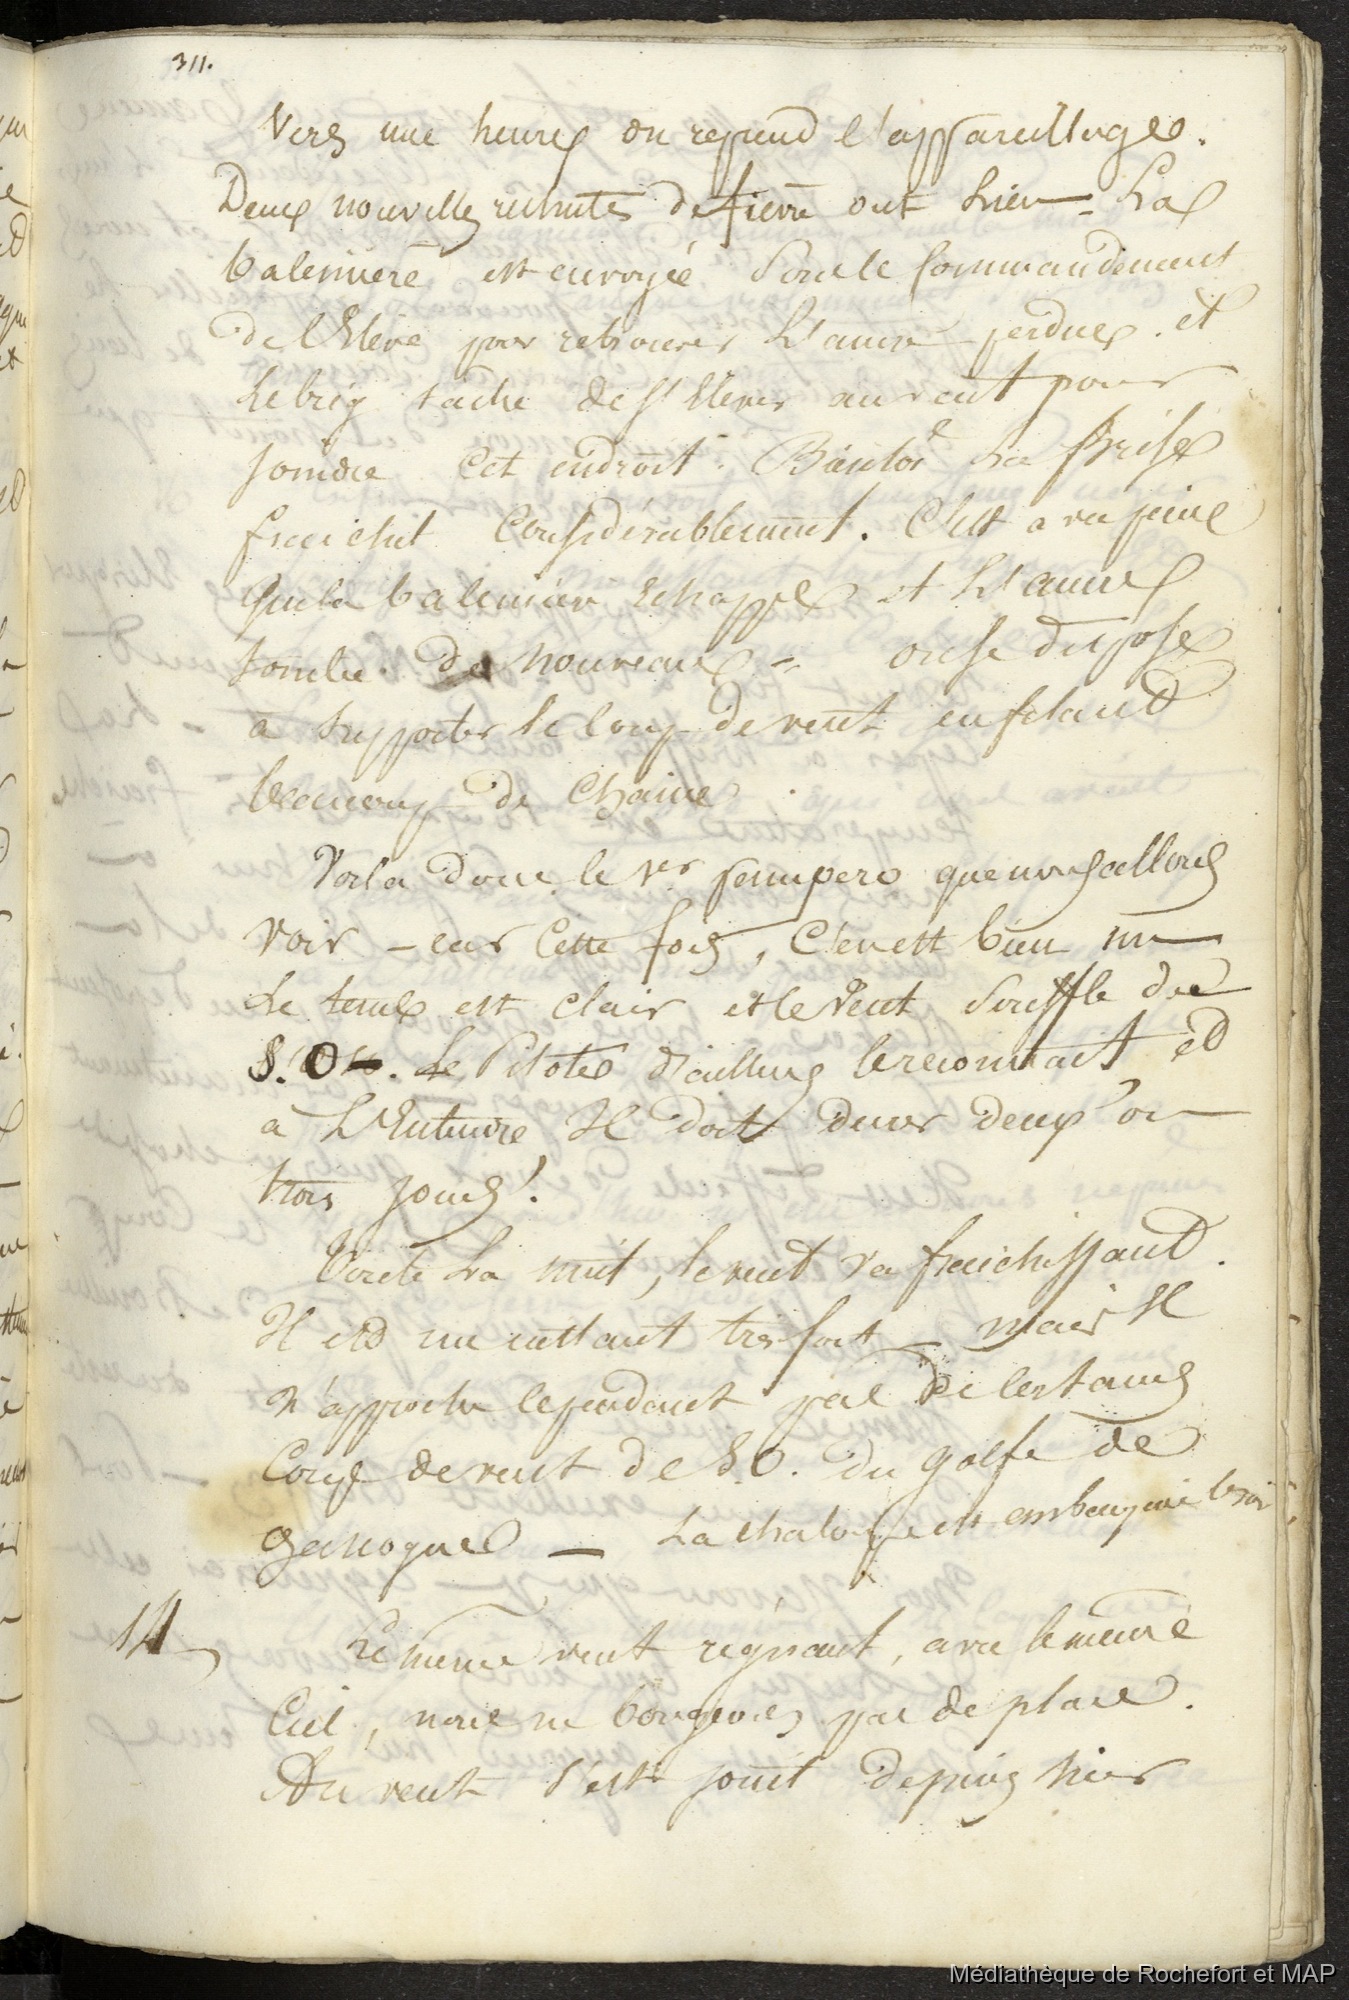 311.
Vers une heure on reprend l'appareillage.
Deux nouvelles rechutes de fièvre ont lieu - La
baleinière est envoyée sous le commandement
de l'Elève pour retrouver l'ancre perdue. et
le brig tache de s'élever au vent pour
joindre cet endroit. Bientôt la brise
fraichit considérablement. C'est à peine
que la baleinière echappe et l'ancre
tombe de nouveau - on se dispose
à supporter le coup de vent en filant
beaucoup de chaine.
Voila donc le 1er pampero que nous allons
voir - car cette fois, c'en est bien un
Le tems est clair et le vent souffle du
S.O. Le Pilote d'ailleurs le reconnait et
à l'entendre Il doit durer deux ou
trois jours.
Toute la nuit, le vent va fraichissant.
Il est un instant très fort - mais Il
n'approche cependant pas de certains
coups de vent de S.O. du golfe de
gascogne - La chaloupe est embarquée le soir
14
Le même vent régnant, avec le même
Ciel, nous ne bougeons pas de place.
Au vent s'est joint depuis hier
Médiathèque de Rochefort et MAP